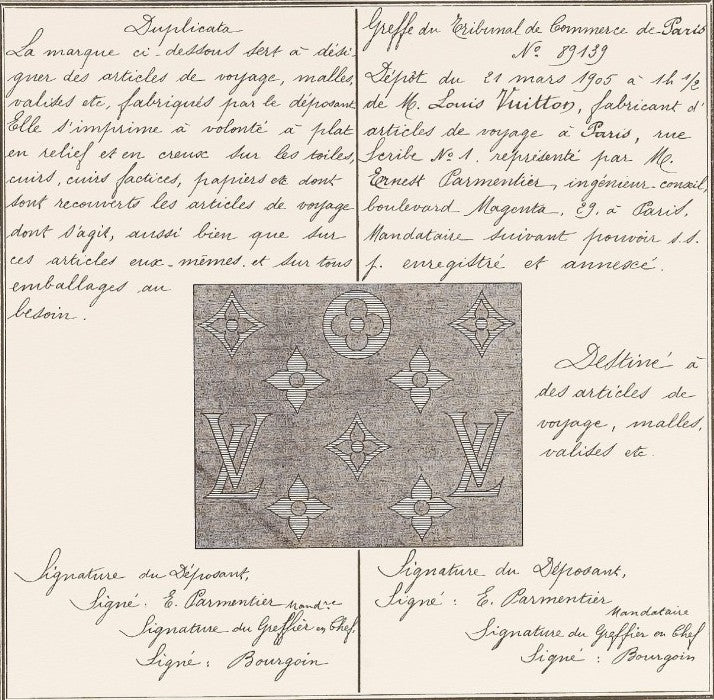 Duplicata
La marque ci-dessous sert à dési-
gner des articles de voyage, malles,
valises etc, fabriqués par le déposant
Elle s'imprime à volonté à plat
en relief et en creux sur les toiles,
cuirs, cuirs factices, papiers etc dont
sont recouverts les articles de voyage
dont s'agit, aussi bien que sur
ces articles eux-mêmes, et sur tous
emballages au
besoin.
Greffe du Tribunal de Commerce de Paris
No. 89139
Dépôt du 21 mars 1905 à 1h 1/2
de M. Louis Vuitton, fabricant d'
articles de voyage à Paris, rue
Scribe No 1. représenté par M.
Ernest Parmentier, ingénieur-conseil,
boulevard Magenta, 29, à Paris,
Mandataire suivant pouvoir s.s.
p. enregistré et annexé.
LV LV
Destiné à
des articles de
voyage, malles,
valises etc.
Signature du Déposant,
Signé : E. Parmentier Mandre
Signature du Greffier en Chef,
Signé : Bourgoin
Signature du Déposant,
Signé : E. Parmentier
Mandataire
Signature du Greffier en Chef
Signé : Bourgoin